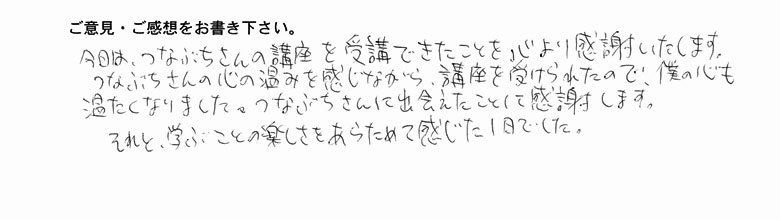 ご意見・ご感想をお書き下さい。
今日は、つなぶちさんの講座を受講できたことを心より感謝いたします。
つなぶちさんの心の温みを感じながら、講座を受けられたので、僕の心も
温たくなりました。つなぶちさんに出会えたことにて感謝します。
それと、学ぶことの楽しさをあらためて感じた1日でした。